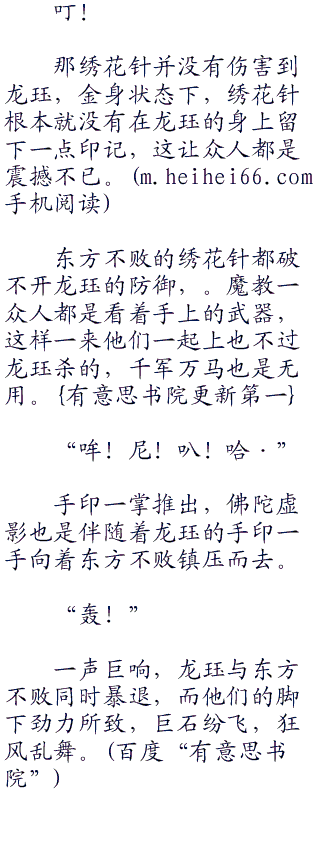 叮！
那绣花针并没有伤害到
龙珏，金身状态下，绣花针
根本就没有在龙珏的身上留
下一点印记，这让众人都是
震撼不已。(m.heihei66.com
手机阅读)
东方不败的绣花针都破
不开龙珏的防御，。魔教一
众人都是看着手上的武器，
这样一来他们一起上也不过
龙珏杀的，千军万马也是无
用。{有意思书院更新第一}
“哞！尼！叭！哈·”
手印一掌推出，佛陀虚
影也是伴随着龙珏的手印一
手向着东方不败镇压而去。
“轰！”
一声巨响，龙珏与东方
不败同时暴退，而他们的脚
下劲力所致，巨石纷飞，狂
风乱舞。(百度“有意思书
院”)